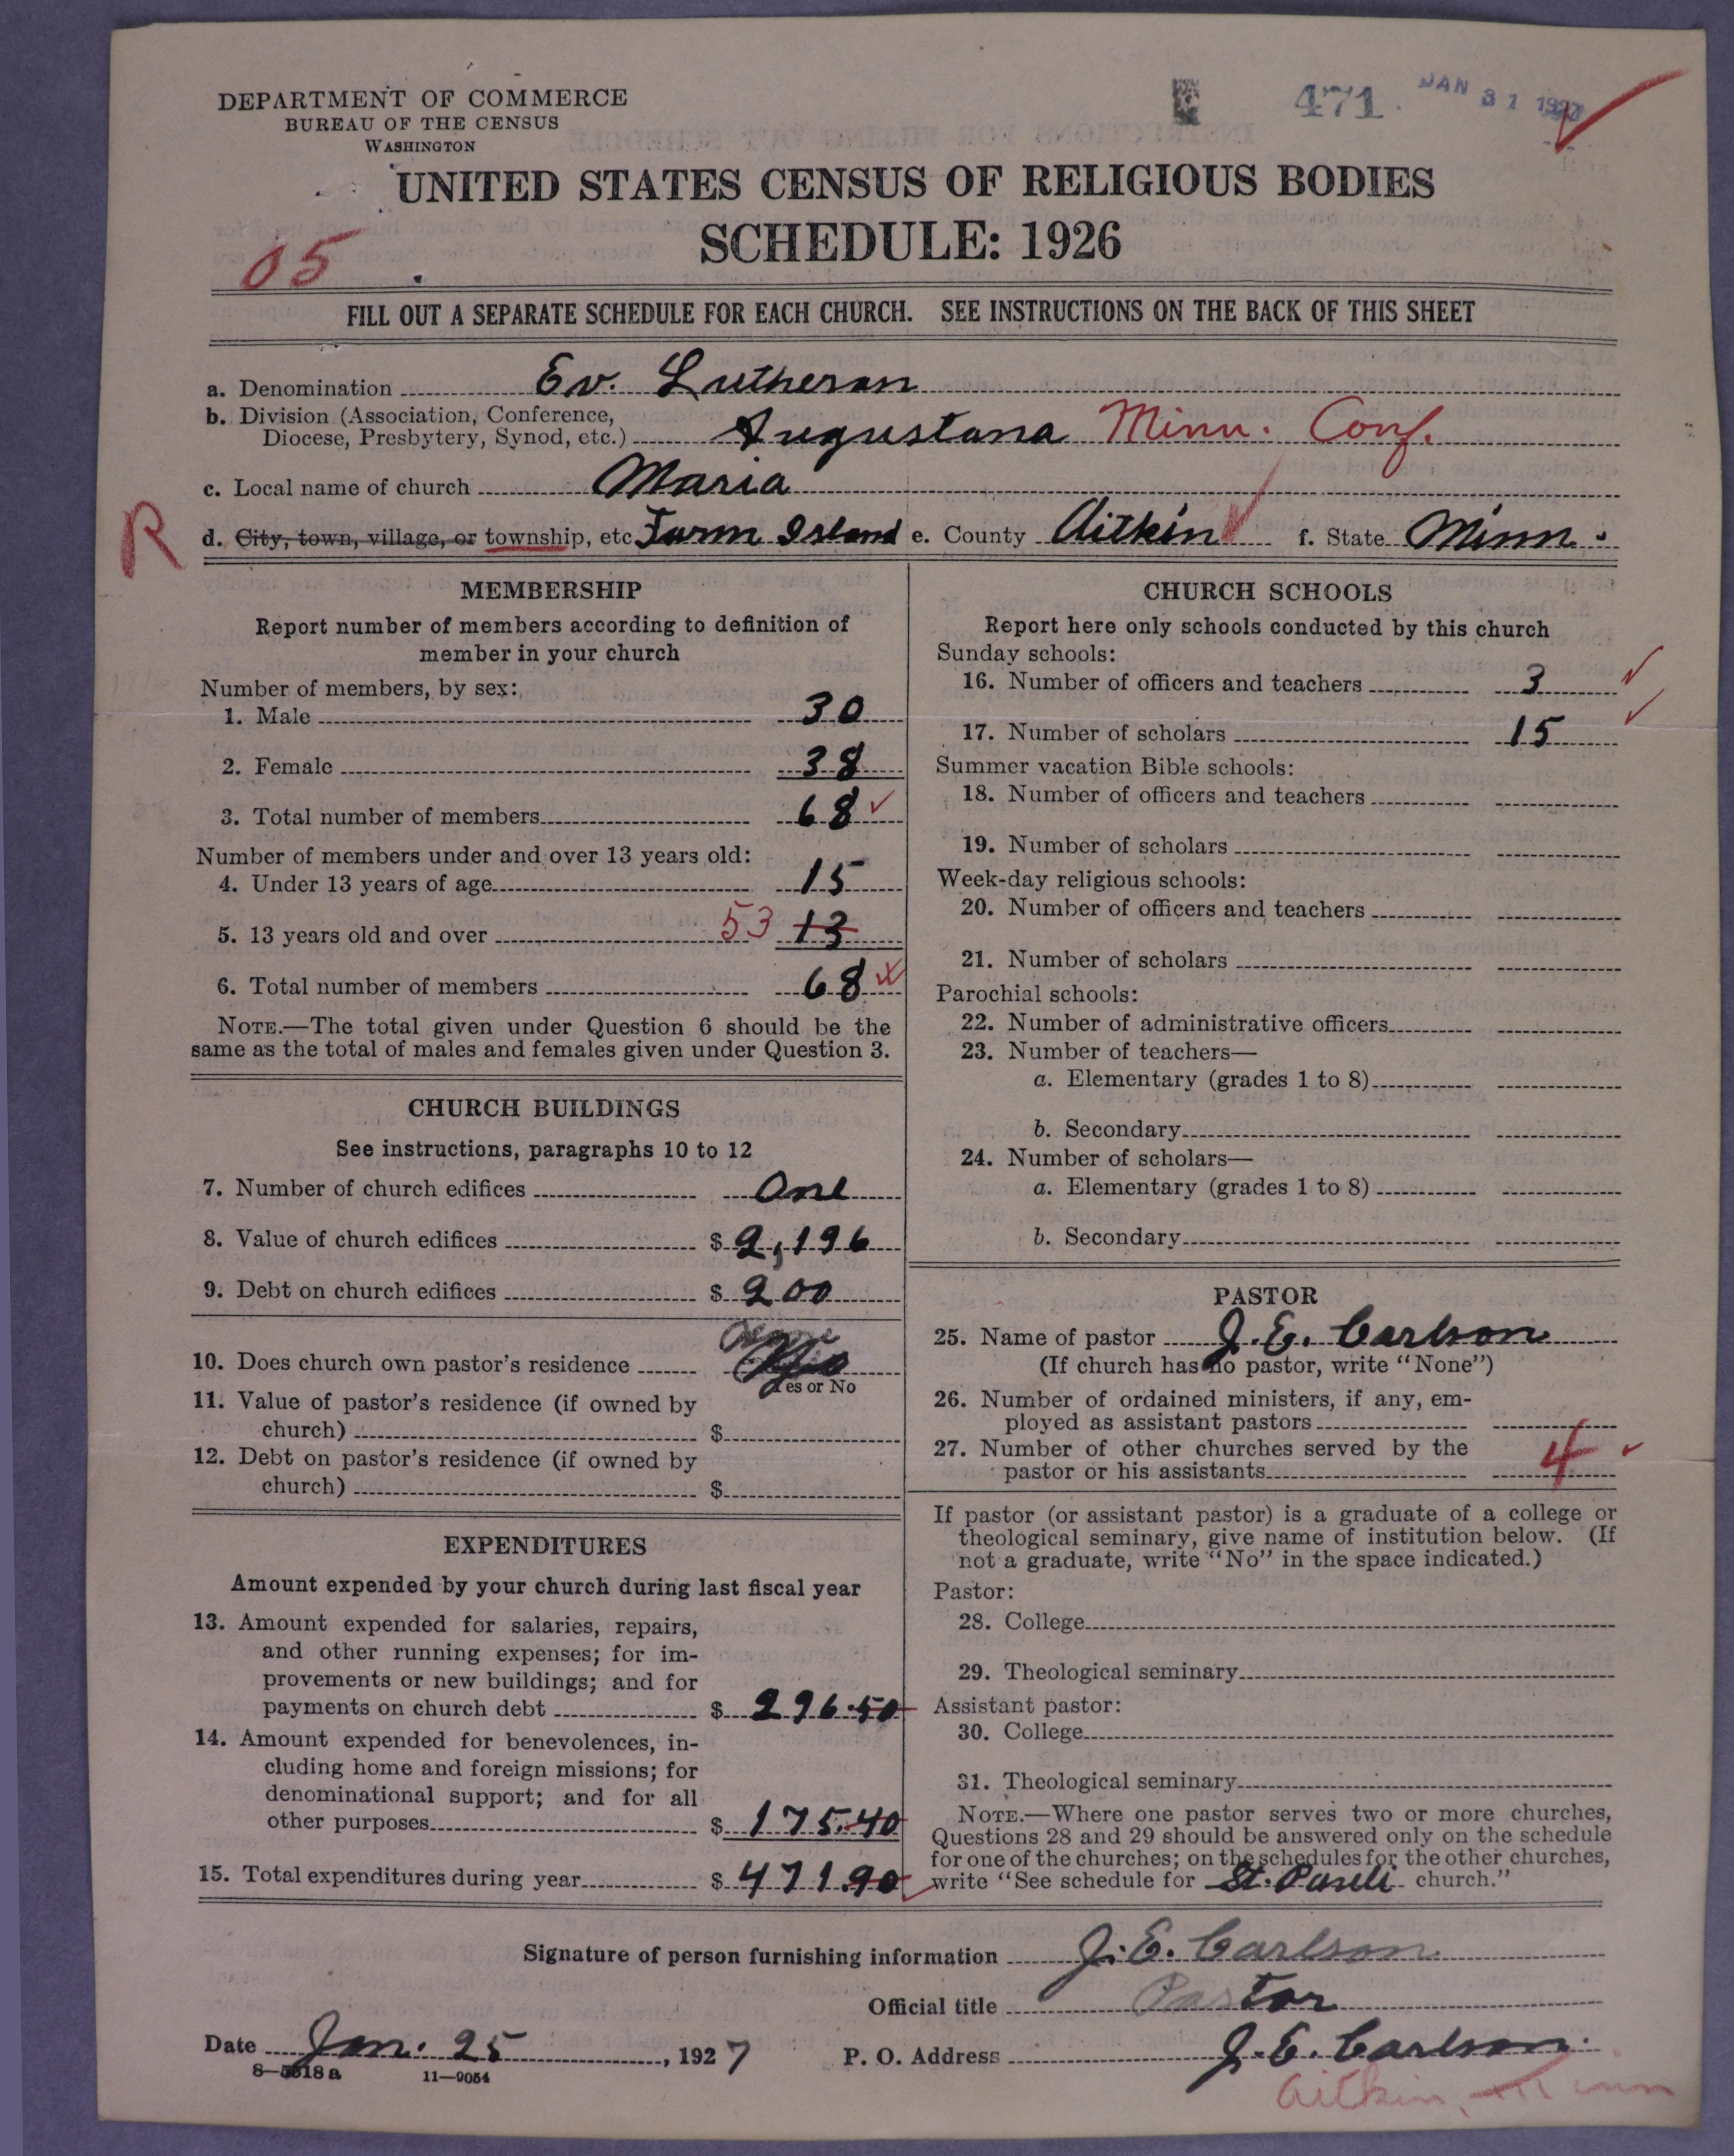 DEPARTMENT OF COMMERCE
BUREAU OF THE CENSUS
WASHINGTON
471
JAN 31 1927
UNITED STATES CENSUS OF RELIGIOUS BODIES
SCHEDULE: 1926
05
FILL OUT A SEPARATE SCHEDULE FOR EACH CHURCH. SEE INSTRUCTIONS ON THE BACK OF THIS SHEET
a. Denomination Ev. Lutheran
b. Division (Association, Conference,
Diocese, Presbytery, Synod, etc.) Augustana Minn. Conf.
c. Local name of church Maria
R
d. City, town, village, or township, etc Farm Island e. County Aitkin f. State Minn.
MEMBERSHIP
Report number of members according to definition of
member in your church
Number of members, by sex:
1. Male 30
2. Female 38
3. Total number of members 68
Number of members under and over 13 years old:
4. Under 13 years of age 15
5. 13 years old and over 53 13
6. Total number of members 68
NOTE.—The total given under Question 6 should be the
same as the total of males and females given under Question 3.
CHURCH BUILDINGS
See instructions, paragraphs 10 to 12
7. Number of church edifices One
8. Value of church edifices $ 2,196
9. Debt on church edifices $ 200
10. Does church own pastor's residence
Yes or No
11. Value of pastor's residence (if owned by
church) $
12. Debt on pastor's residence (if owned by
church) $
EXPENDITURES
Amount expended by your church during last fiscal year
13. Amount expended for salaries, repairs,
and other running expenses; for im-
provements or new buildings; and for
payments on church debt $ 296.50
14. Amount expended for benevolences, in-
cluding home and foreign missions; for
denominational support; and for all
other purposes $ 175.40
15. Total expenditures during year $ 471.90
CHURCH SCHOOLS
Report here only schools conducted by this church
Sunday schools:
16. Number of officers and teachers 3
17. Number of scholars 15
Summer vacation Bible schools:
18. Number of officers and teachers
19. Number of scholars
Week-day religious schools:
20. Number of officers and teachers
21. Number of scholars
Parochial schools:
22. Number of administrative officers
23. Number of teachers—
a. Elementary (grades 1 to 8)
b. Secondary
24. Number of scholars—
a. Elementary (grades 1 to 8)
b. Secondary
PASTOR
25. Name of pastor J. E. Carlson
(If church has no pastor, write "None")
26. Number of ordained ministers, if any, em-
ployed as assistant pastors
27. Number of other churches served by the
pastor or his assistants 4
If pastor (or assistant pastor) is a graduate of a college or
theological seminary, give name of institution below. (If
not a graduate, write "No" in the space indicated.)
Pastor:
28. College
29. Theological seminary
Assistant pastor:
30. College
31. Theological seminary
NOTE.—Where one pastor serves two or more churches,
Questions 28 and 29 should be answered only on the schedule
for one of the churches; on the schedules for the other churches,
write "See schedule for St. Pauli church."
Signature of person furnishing information J. E. Carlson
Official title Pastor
Date Jan. 25, 1927 P. O. Address J. E. Carlson
Aitkin, Minn
8—5618 a 11—9054